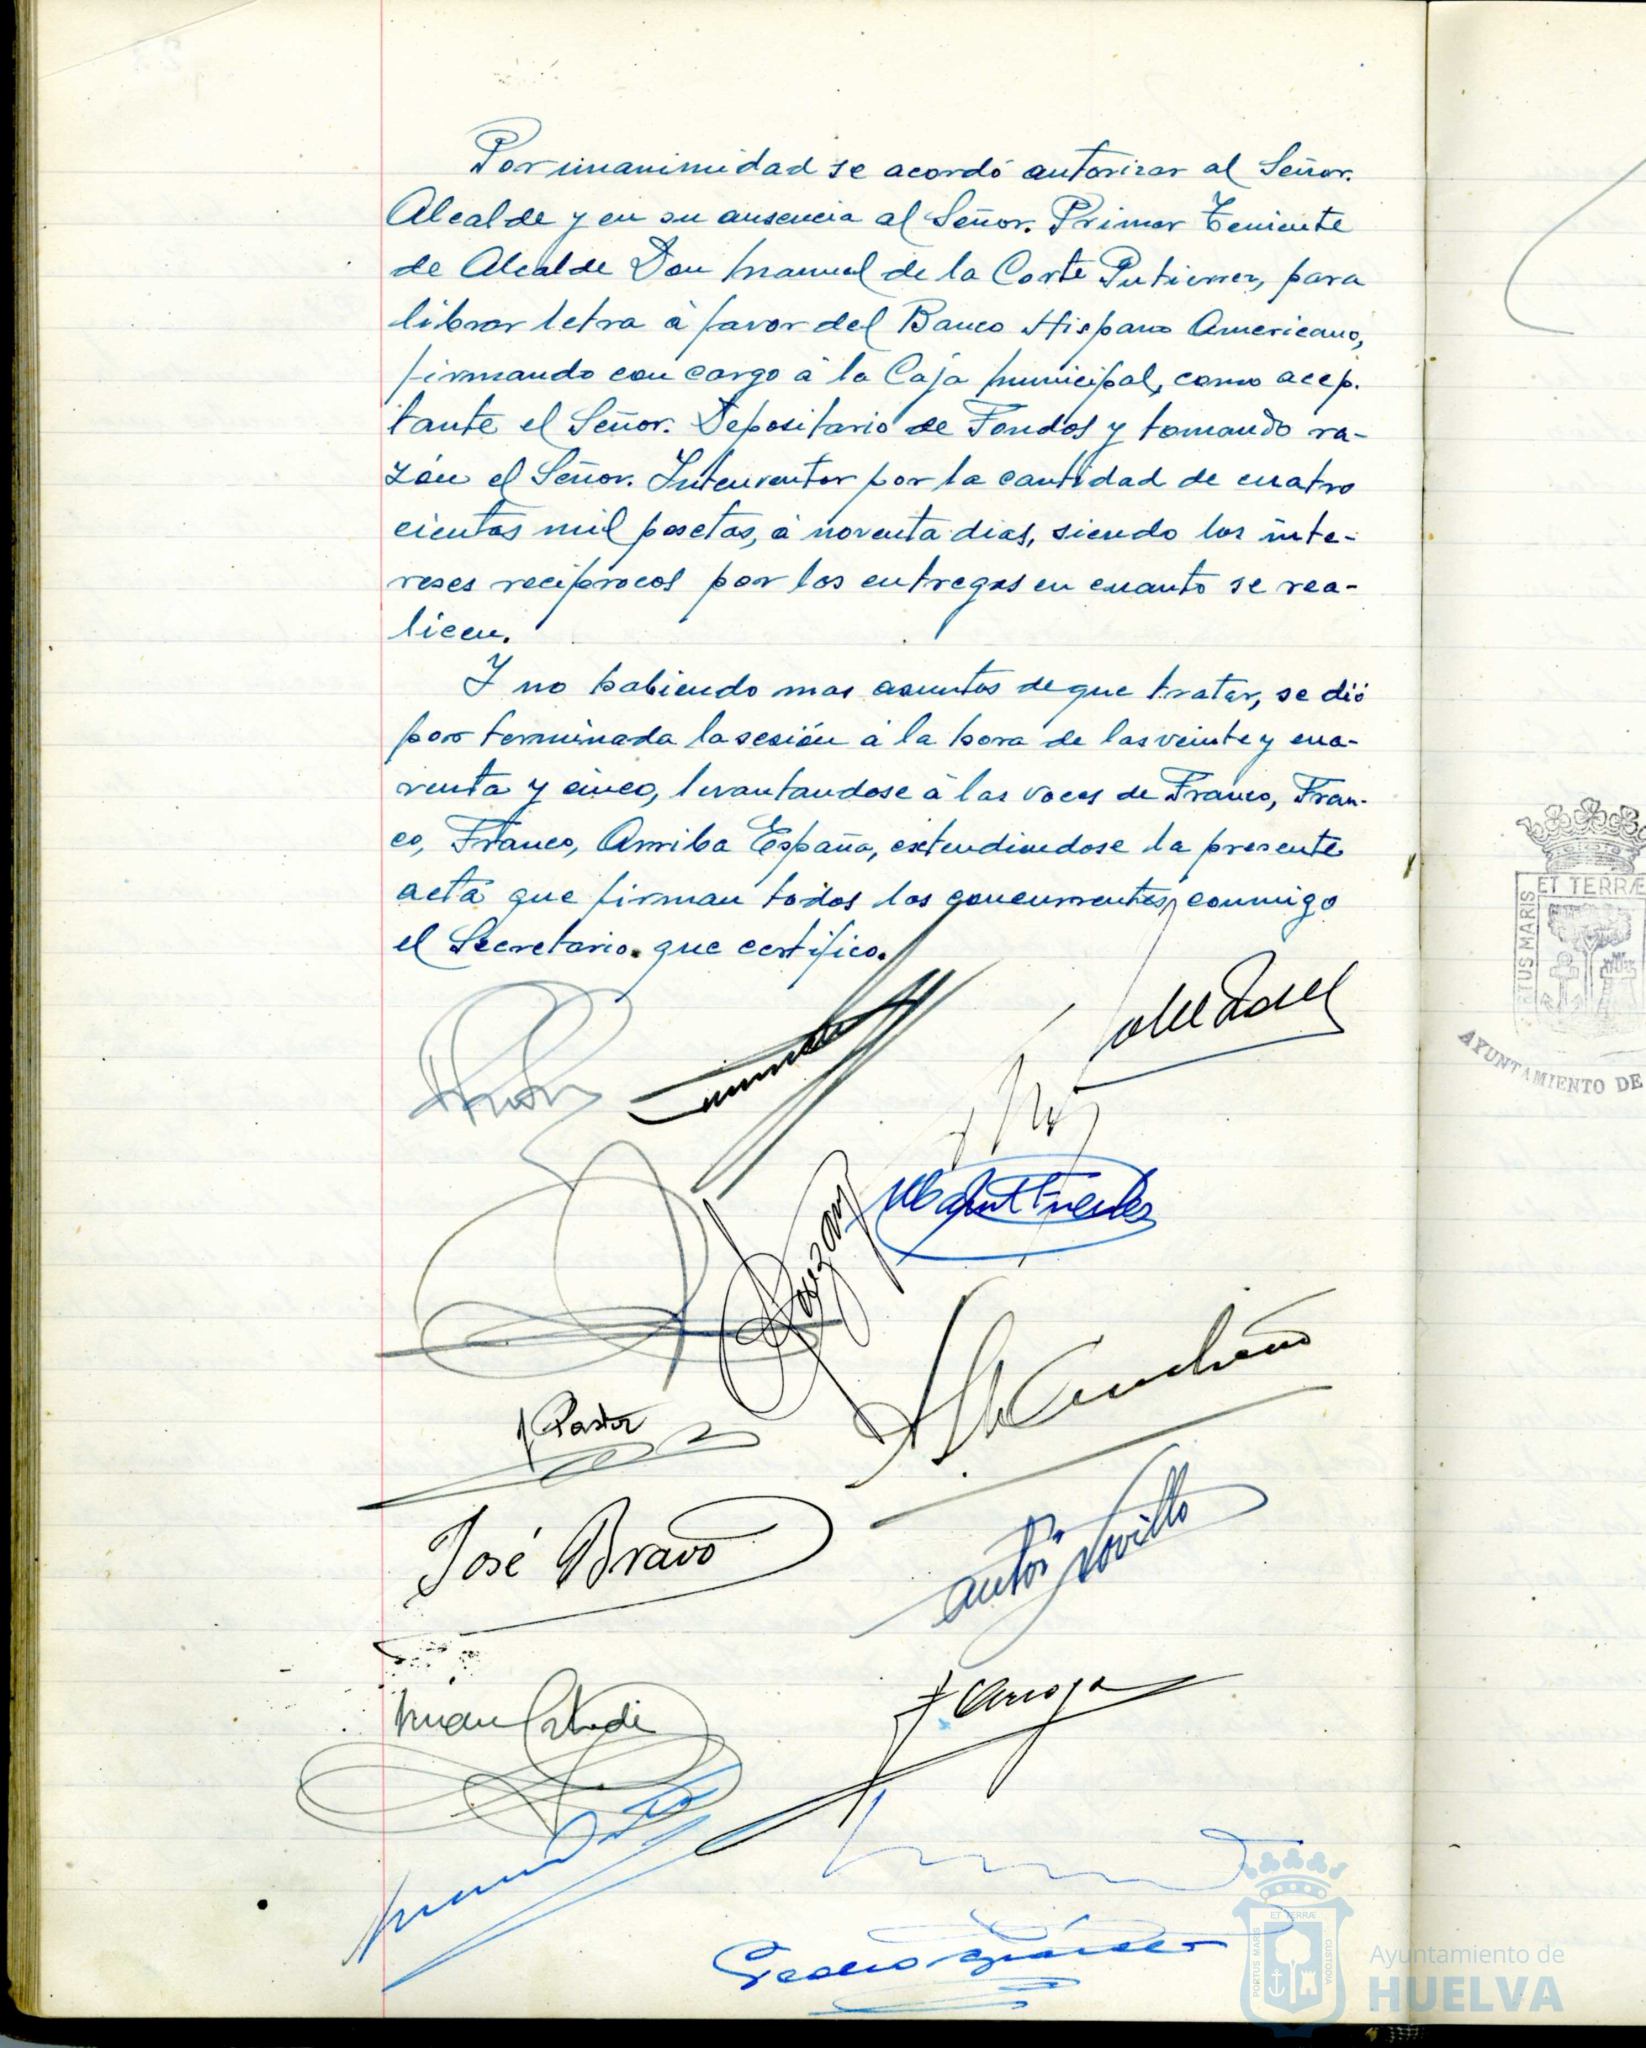 Por unanimidad se acordó autorizar al Señor.
Alcalde y en su ausencia al Señor. Primer Teniente
de Alcalde Don Manuel de la Corte Gutierrez, para
librar letra á favor del Banco Hispano Americano,
firmando con cargo á la Caja Municipal, como acep-
tante el Señor. Depositario de Fondos y tomando ra-
zón el Señor. Interventor por la cantidad de cuatro
cientas mil pesetas, á noventa dias, siendo los inte-
reses reciprocos por las entregas en cuanto se rea-
licen.
Y no habiendo mas asuntos de que tratar, se dió
por terminada la sesión á la hora de las veinte y cua-
renta y cinco, levantandose á las voces de Franco, Fran-
co, Franco, Arriba España, extendiendose la presente
acta que firman todos los concurrentes, conmigo
el Secretario. que certifico.
J. Pastor
José Bravo
F. Arroya
ET TERRÆ
PORTUS MARIS
AYUNTAMIENTO DE
ET TERRÆ
PORTUS MARIS
CUSTODIA
Ayuntamiento de
HUELVA